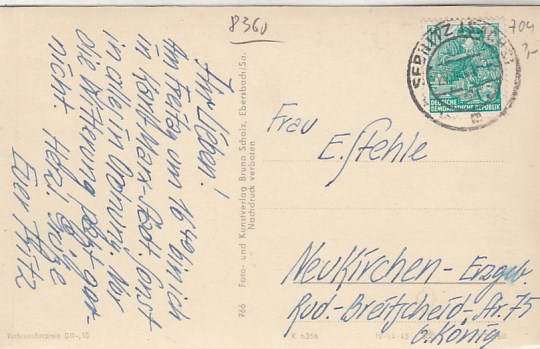 8360
704
3,-
SEBNITZ (SACHS)
DEUTSCHE
DEMOKRATISCHE REPUBLIK
Ihr Lieben!
Am Freitag um 16 Uhr bin ich
in Karl-Marx-Stadt. Sonst
in aller in Ordnung. Nur
die Witterung paßt gar
nicht. Herzl. Grüße
Euer Fritz
766 Foto- und Kunstverlag Bruno Scholz, Ebersbach/Sa.
Nachdruck verboten
Frau
E. Stehle
Neukirchen-Erzgeb.
Rud.-Breitscheid-Str. 75
b. König
Verbraucherpreis DM -,15
K 6356